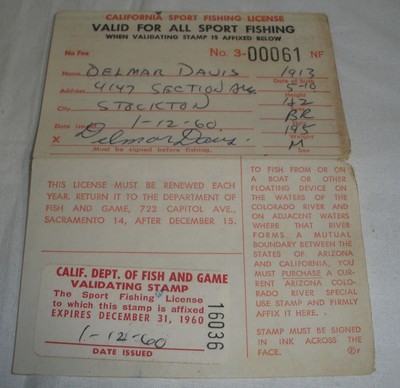 CALIFORNIA SPORT FISHING LICENSE
VALID FOR ALL SPORT FISHING
WHEN VALIDATING STAMP IS AFFIXED BELOW
No Fee No. 3-00061 NF
Name DELMAR DAVIS 1913
Date of Birth
Address 4147 SECTION Ave 5-10
Height
City STOCKTON
BR
Date Issued 1-12-60 195
Weight
X Delmar Davis M
Must be signed before fishing. Sex
THIS LICENSE MUST BE RENEWED EACH
YEAR. RETURN IT TO THE DEPARTMENT
OF FISH AND GAME, 722 CAPITOL AVE.,
SACRAMENTO 14, AFTER DECEMBER 15.
CALIF. DEPT. OF FISH AND GAME
VALIDATING STAMP
The Sport Fishing License
to which this stamp is affixed
EXPIRES DECEMBER 31, 1960
1-12-60
DATE ISSUED
16036
TO FISH FROM OR ON
A BOAT OR OTHER
FLOATING DEVICE ON
THE WATERS OF THE
COLORADO RIVER AND
ON ADJACENT WATERS
WHERE THAT RIVER
FORMS A MUTUAL
BOUNDARY BETWEEN THE
STATES OF ARIZONA
AND CALIFORNIA, YOU
MUST PURCHASE A CUR-
RENT ARIZONA COLO-
RADO RIVER SPECIAL
USE STAMP AND FIRMLY
AFFIX IT HERE . .
STAMP MUST BE SIGNED
IN INK ACROSS THE
FACE.